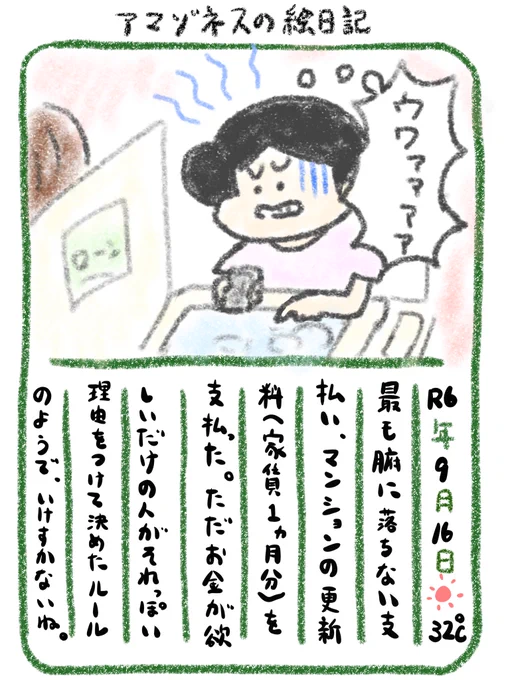 アマゾネスの絵日記
ウワァァァァ
ローン
R6年9月16日 32℃
最も腑に落ちない支
払い、マンションの更新
料(家賃1ヵ月分)を
支払った。ただお金が欲
しいだけの人がそれっぽい
理由をつけて決めたルール
のようで、いけすかないね。